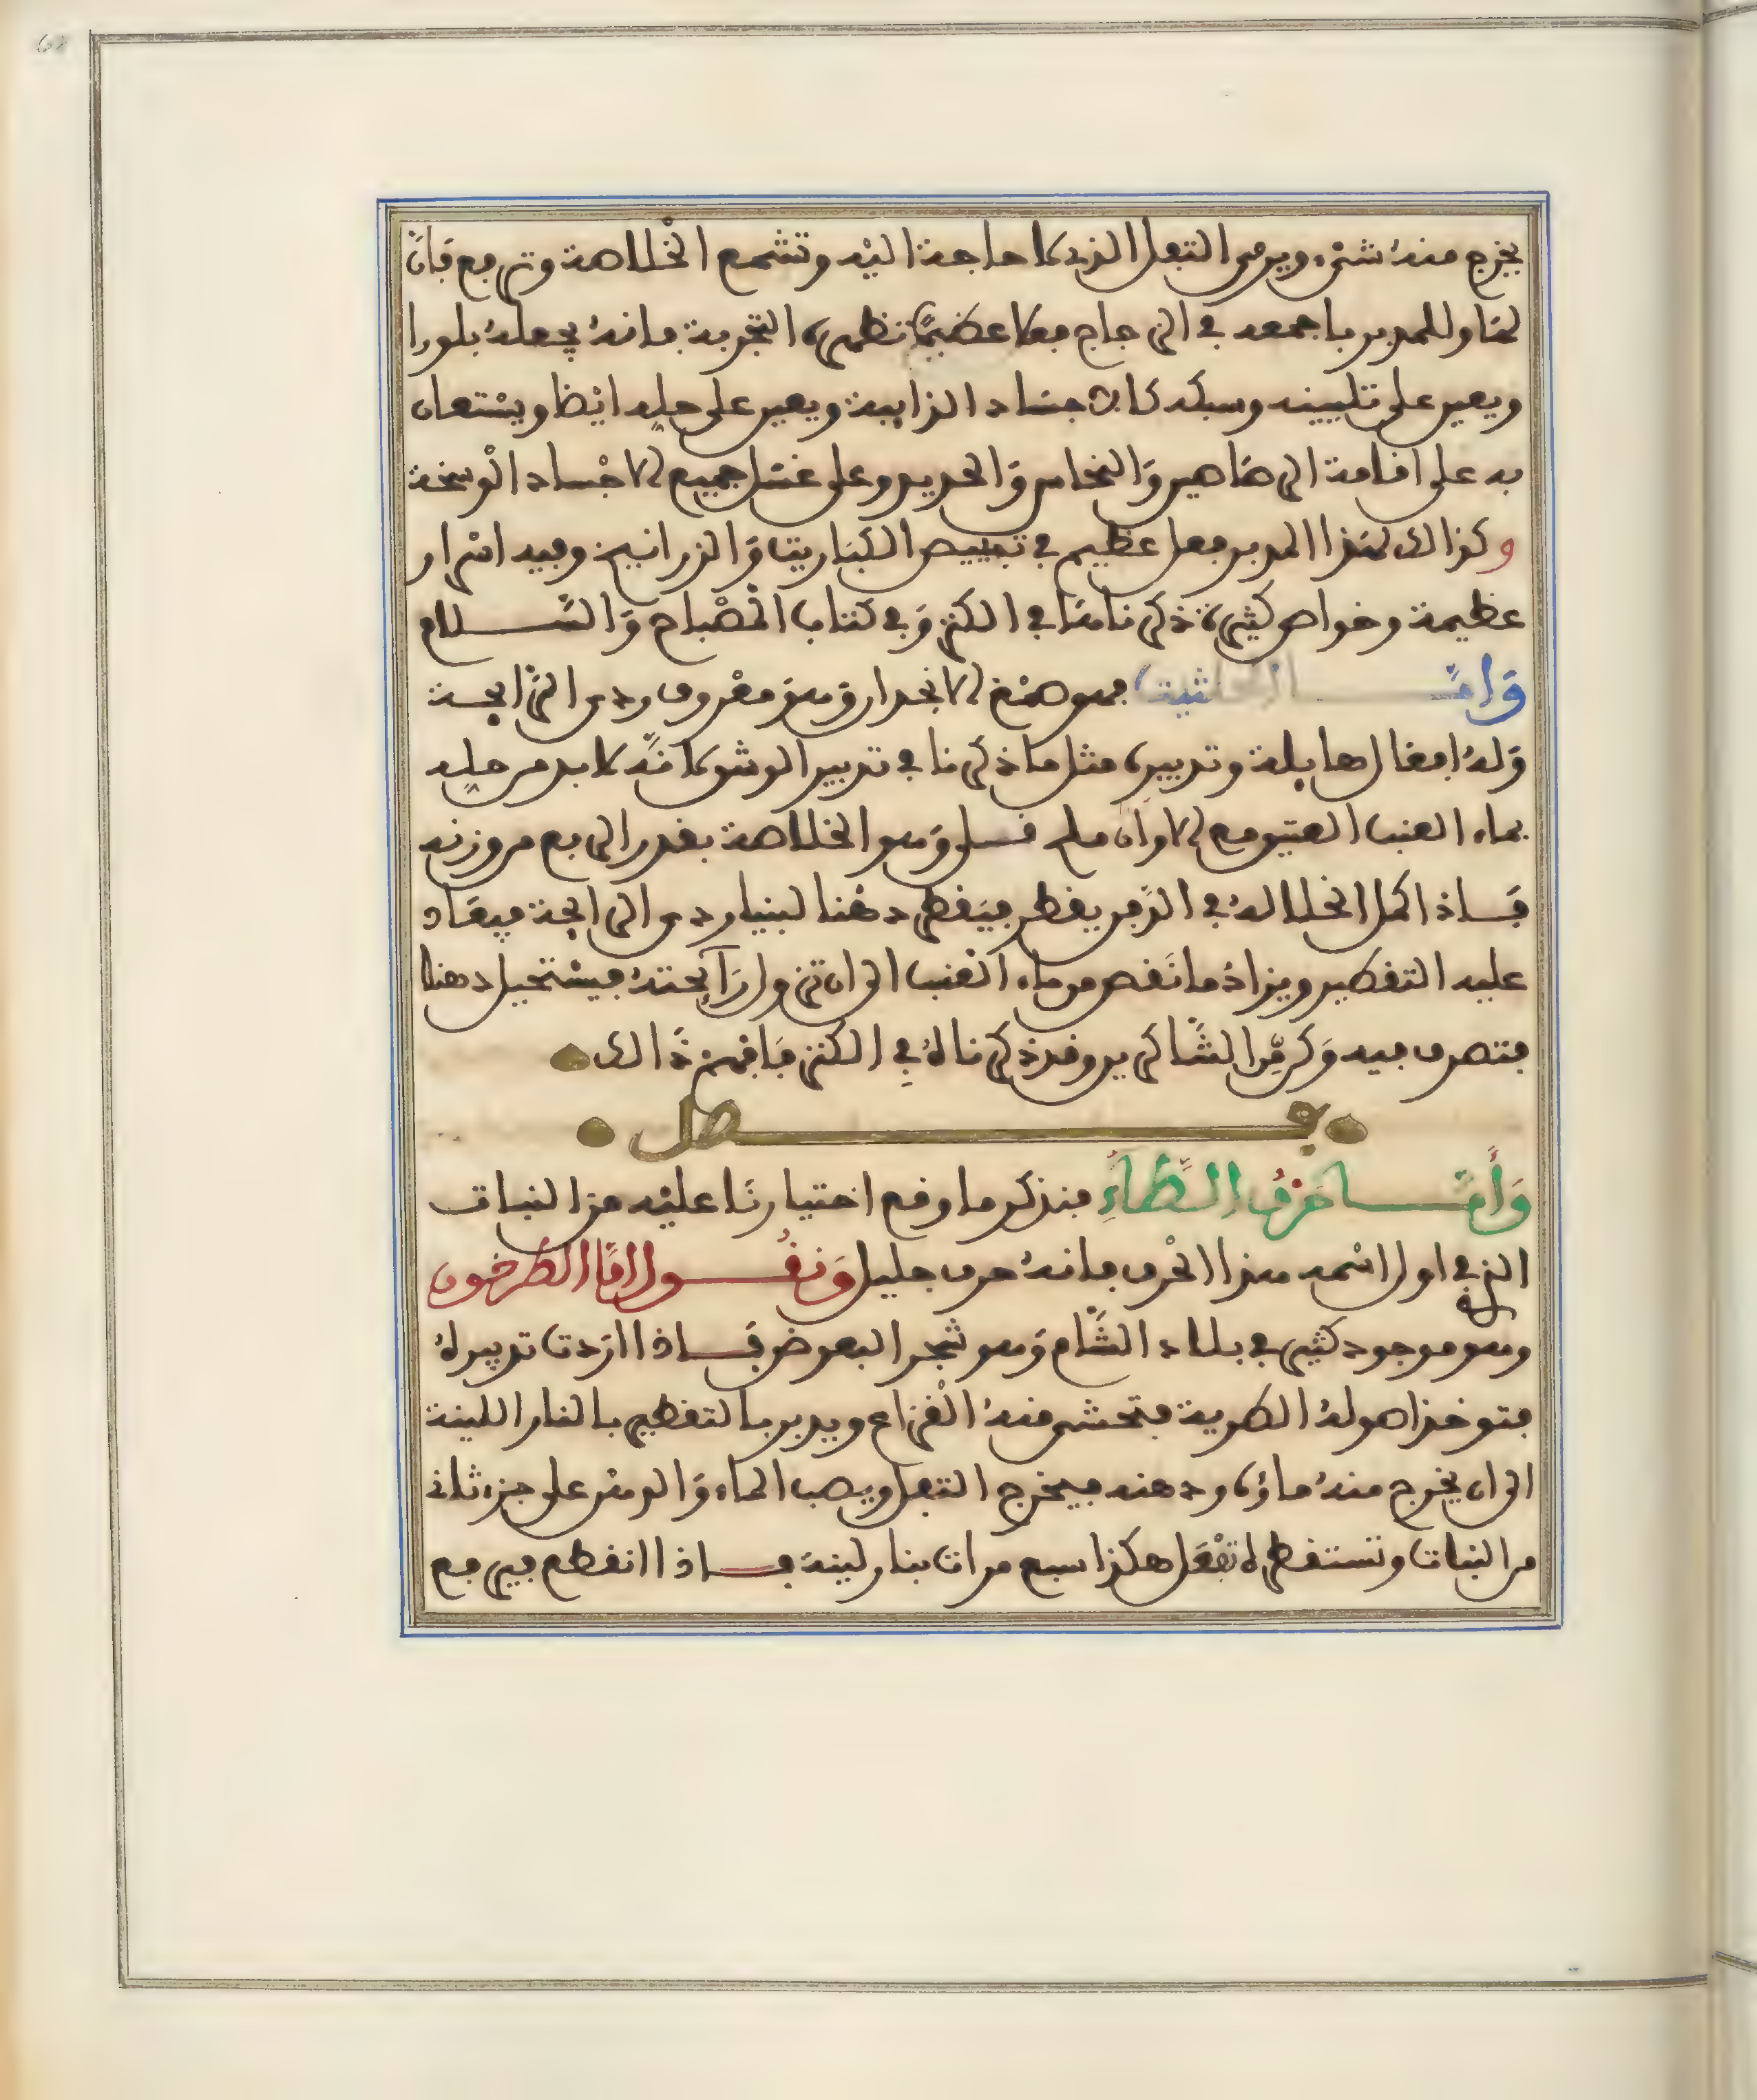 يخرج منه شىء ويرمى التفل الذى لا حاجة اليه وتشمع الخلاصة وترفع فان
لهذا المدبر باجمعه فى الزجاج فعلا عظيما تظهره التجربة فانه يجعله بلورا
ويعين على تليينه وسبكه كالاجساد الذايبة ويعين على حله ايضا ويستعان
به على اقامة الرصاصين والنحاس والحديد وعلى غسل جميع الاجساد الوسخة
وكذالك لهذا المدبر فعل عظيم فى تبييض الكباريت والزرانيخ وفيه اسرار
عظيمة وخواص كثيرة ذكرناها فى الكنز وفى كتاب المصباح والسلام
واما الحلثيت فهو صمغ الانجدان وهو معروف ردى الرايحة
وله افعال هايلة وتدبيره مثل ما ذكرنا فى تدبير الوشق لانه لا بد من حله
بماء العنب العتيق مع الاوان ملح قلى وهو الخلاصة بقدر الربع من وزنه
فاذا كمل انحلاله فى الزبل يقطر فيقطر دهنا لبنيا ردى الرايحة فيعاد
عليه التقطير ويزاد ما نقص من ماء العنب الى ان تزول رايحته فيستحيل دهنا
فتصرف فيه وكن من الشاكرين وقد ذكرناه فى الكنز فافهم ذالك
فصل
واما حرف الطاء فنذكر ما وقع اختيارنا عليه من النبات
الذى فى اول اسمه هذا الحرف فانه حرف جليل ونقول اما الطرخون
وهو موجود كثير فى بلاد الشام وهو شجر البعوض فاذا اردت تدبيره
فتوخذ اصوله الطرية فتحشى منه القراع ويدبر بالتقطير بالنار اللينة
الى ان يخرج منه ماؤه ودهنه فيخرج التفل ويصب الماء والدهن على جزء ثان
من النبات وتستقطره تفعل هكذا سبع مرات بنار لينة فاذا انقطع فيرفع